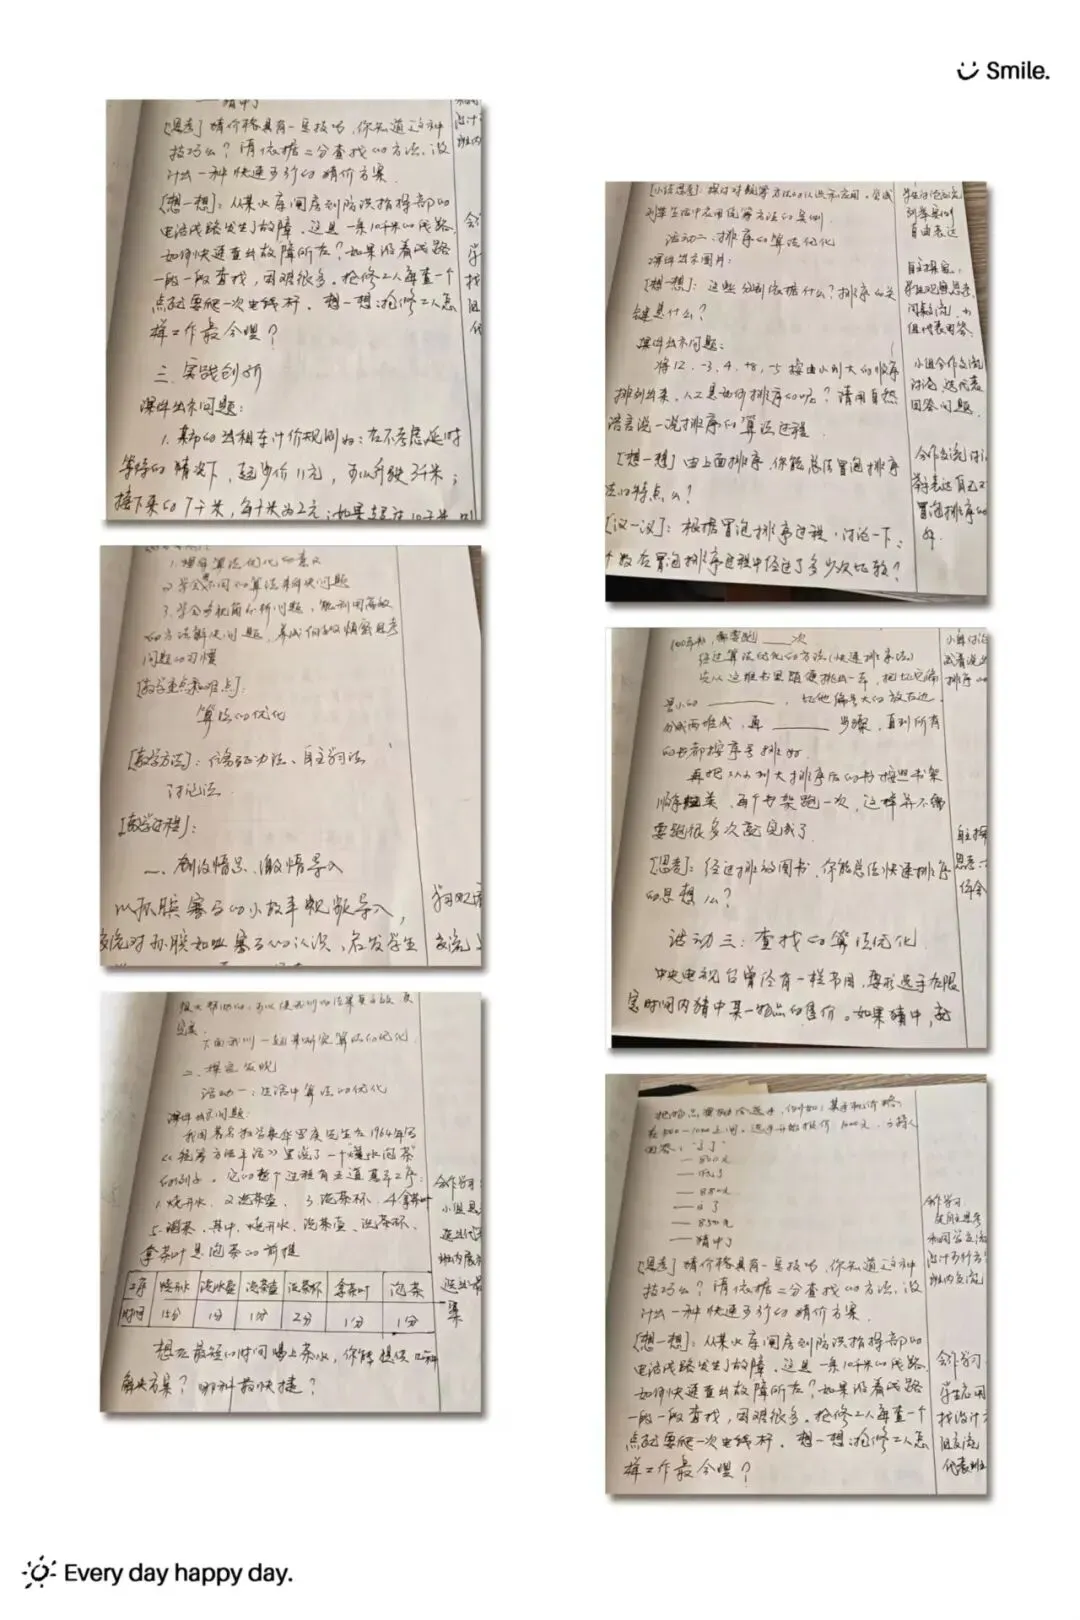 Smile.
猜中了
[思考] 猜价格具有一些技巧,你知道这种
技巧么?请依据二分查找的方法,设
计出一种快速可行的猜价方案.
[想一想]:从某水库闸房到防洪指挥部的
电话线路发生了故障.这是一条10千米的线路,
如何快速查出故障所在?如果沿着线路
一段一段查找,困难很多.抢修工人每查一个
点就要爬一次电线杆.想一想:抢修工人怎
样工作最合理?
三、实践创新
课件出示问题:
1.某市的出租车计价规则为:在不考虑延时
等待的情况下,起步价11元,可以行驶3千米;
接下来的7千米,每千米为2元;如果超过10千米
1.理解算法优化的意义
2.学会不同的算法来解决问题
3.学会多视角分析问题,能利用高效
的方法解决问题,养成
问题的习惯
[教学重点和难点]:
算法的优化
[教学方法]:任务驱动法、自主学习法
讨论法
[教学过程]:
一、创设情景、激情导入
以孙膑赛马的小故事视频导入,
交流对孙膑如此赛马的认识,启发学生
下面我们一起来研究算法的优化.
二、探究发现
活动一:生活中算法的优化
课件出示问题:
我国著名数学家华罗庚先生在1964年写
《统筹方法平话》里说了一个"烧水泡茶"
的例子.它的整个过程有五道基本工序:
1.烧开水 2.洗茶壶 3.洗茶杯 4.拿茶叶
5.泡茶.其中,烧开水、洗茶壶、洗茶杯、
拿茶叶是泡茶的前提
工序 烧开水 洗水壶 洗茶壶 洗茶杯 拿茶叶 泡茶
时间 15分 1分 1分 2分 1分 1分
想在最短的时间喝上茶水,你能提供几种
解决方案?哪种最快捷?
合作学习:
[小结思考]:探讨对统筹方法的认识和应用.尝试
列举生活中应用统筹方法的实例
活动二、排序的算法优化
课件出示图片:
[想一想]:这些分别依据什么?排序的关
键是什么?
课件出示问题:
将12、-3、4、+8、-5按由小到大的顺序
排列出来.人工是如何排序的呢?请用自然
语言说一说排序的算法过程.
[想一想]由上面排序,你能总结冒泡排序
法的特点么?
[议一议]:根据冒泡排序过程,讨论一下:
个数在冒泡排序过程中经过了多少次比较?
列举实例
自由表达
自主探究,
组代表回答.
小组合作交流
讨论,选代表
回答问题.
100本书,需要跑____次
经过算法优化的方法(快速排序法)
先从这堆书里随便挑出一本,把比它编
号小的________,比他编号大的放右边.
分成两堆或,再________步骤,直到所有
的书都按序号排好.
再把从小到大排序后的书按照书架
顺序归类,每个书架跑一次,这样并不需
要跑很多次就完成了.
[思考]:经过排放图书,你能总结快速排序
的思想么?
活动三:查找的算法优化
中央电视台曾经有一栏节目,要求选手在限
定时间内猜中某一物品的售价。如果猜中,就
把物品奖励给选手,例如:某手机价格
在500-1000之间.选手开始报价1000元,主持人
回答:高了
— 800元
— 低了
— 880元
— 高了
— 850元
— 猜中了
[思考] 猜价格具有一些技巧,你知道这种
技巧么?请依据二分查找的方法,设
计出一种快速可行的猜价方案.
[想一想]:从某水库闸房到防洪指挥部的
电话线路发生了故障.这是一条10千米的线路,
如何快速查出故障所在?如果沿着线路
一段一段查找,困难很多.抢修工人每查一个
点就要爬一次电线杆.想一想:抢修工人怎
样工作最合理?
合作学习
合作学习
Every day happy day.